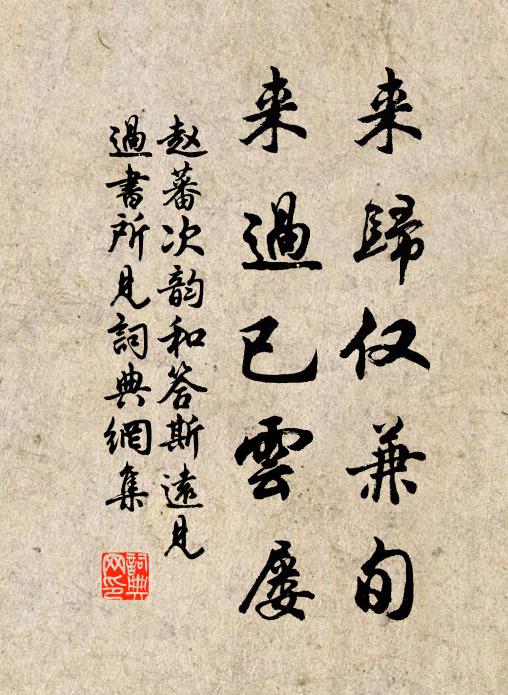 来歸仅兼旬
来過已雲屡
赵蕃次韵和答斯遠見
過書所見詞典網集
詞典
网印